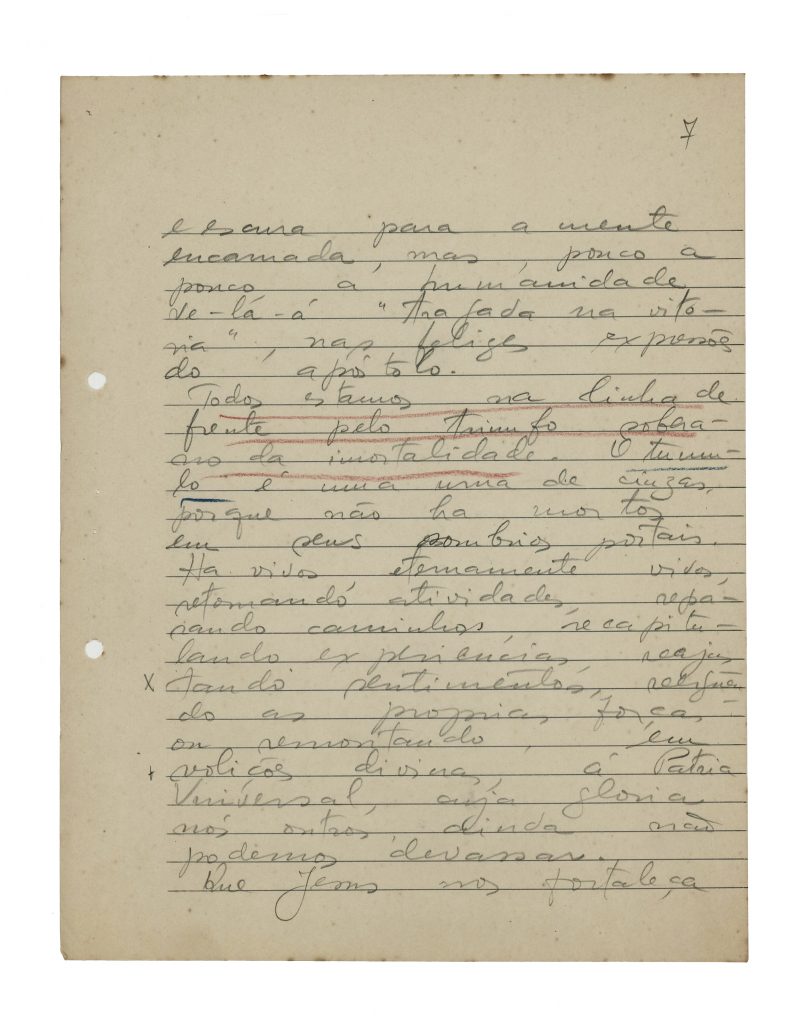 7
e escura para a mente
encarnada, mas, pouco a
pouco a humanidade
ve-lá-á "tragada na vitó-
ria", nas felizes expressões
do apóstolo.
Todos estamos na linha de
frente pelo triunfo sobera-
no da imortalidade. O tumu-
lo é uma urna de cinzas,
porque não ha mortos
em seus sombrios portais.
Ha vivos, eternamente vivos,
retomando atividades, repa-
rando caminhos, recapitu-
lando experiências, reajus
X tando sentimentos, reerguen
do as proprias forças
ou remontando, em
+ volições divinas, á Patria
Universal, cuja gloria
nós outros ainda não
podemos devassar.
Que Jesus nos fortaleça